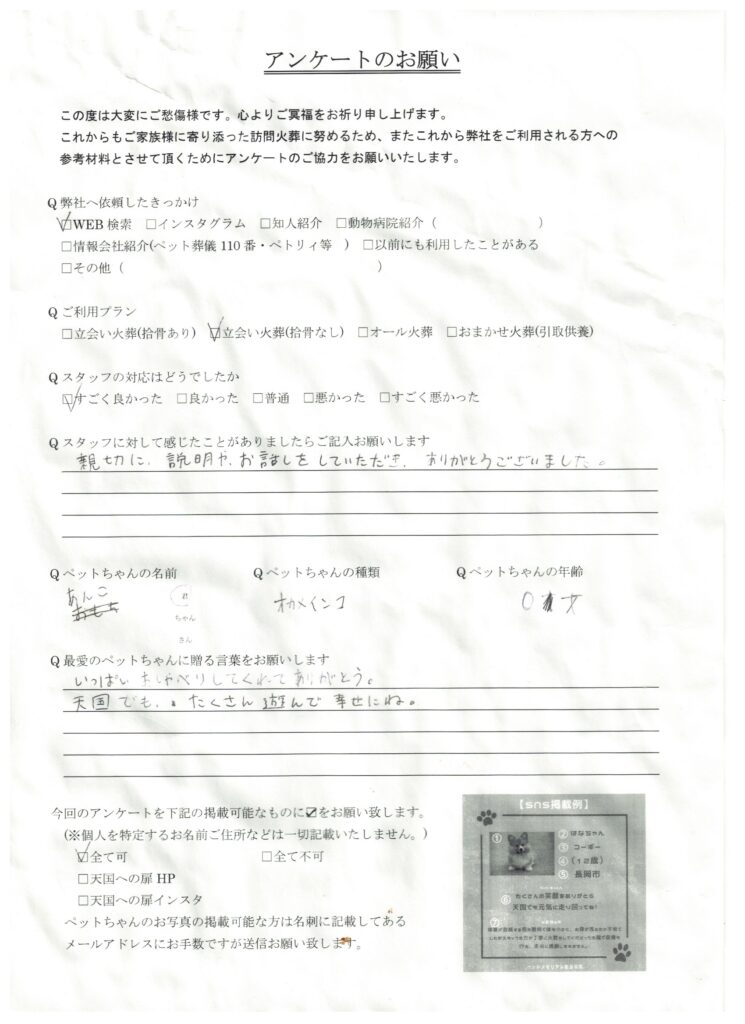 アンケートのお願い
この度は大変にご愁傷様です。心よりご冥福をお祈り申し上げます。
これからもご家族様に寄り添った訪問火葬に努めるため、またこれから弊社をご利用される方への
参考材料とさせて頂くためにアンケートのご協力をお願いいたします。
Q 弊社へ依頼したきっかけ
☑WEB 検索 □インスタグラム □知人紹介 □動物病院紹介（ ）
□情報会社紹介(ペット葬儀 110 番・ペトリィ等 ) □以前にも利用したことがある
□その他（ ）
Q ご利用プラン
□立会い火葬(拾骨あり) ☑立会い火葬(拾骨なし) □オール火葬 □おまかせ火葬(引取供養)
Q スタッフの対応はどうでしたか
☑すごく良かった □良かった □普通 □悪かった □すごく悪かった
Q スタッフに対して感じたことがありましたらご記入お願いします
親切に、説明や、お話しをしていただき、ありがとうございました。
Q ペットちゃんの名前 Q ペットちゃんの種類 Q ペットちゃんの年齢
あんこ 君 オカメインコ
ちゃん
さん
Q 最愛のペットちゃんに贈る言葉をお願いします
いっぱいおしゃべりしてくれてありがとう。
天国でも、たくさん遊んで幸せにね。
今回のアンケートを下記の掲載可能なものに☑をお願い致します。
(※個人を特定するお名前ご住所などは一切記載いたしません。)
☑全て可 □全て不可
□天国への扉 HP
□天国への扉インスタ
ペットちゃんのお写真の掲載可能な方は名刺に記載してある
メールアドレスにお手数ですが送信お願い致します。
【sns掲載例】
① ② はなちゃん
③ コーギー
④ (12歳)
⑤ 長岡市
⑥ たくさんの笑顔をありがとう
天国でも元気に走り回ってね！
⑦